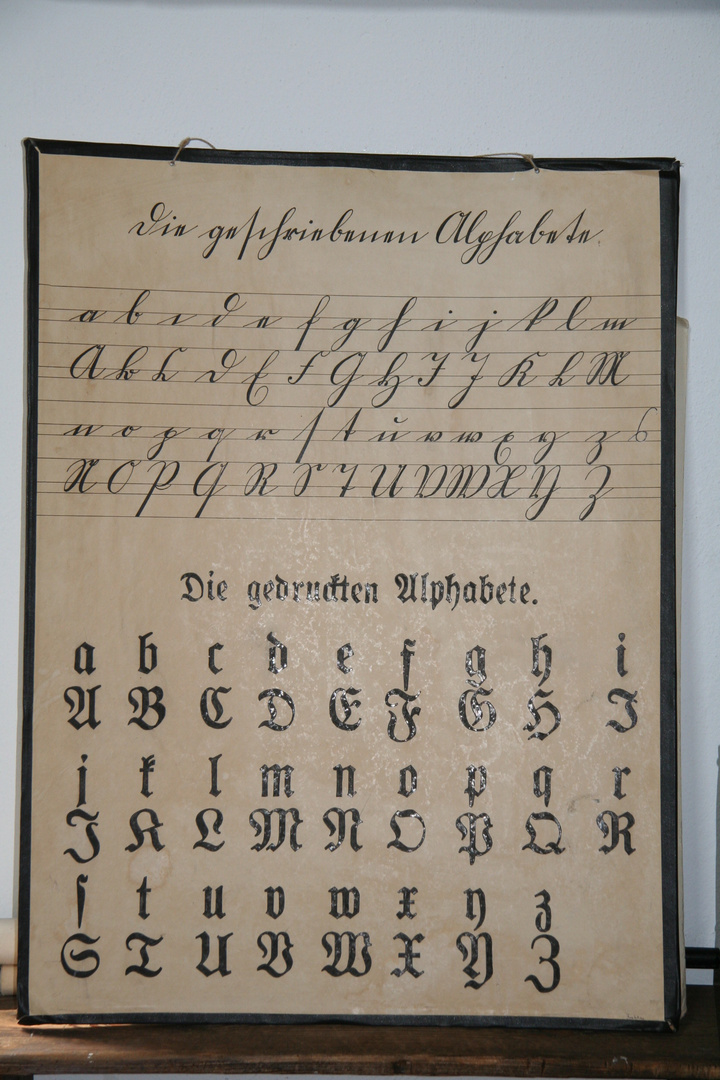 Die geschriebenen Alphabete.
a b c d e f g h i j k l m
A B C D E F G H I J K L M
n o p q r ſ t u v w x y z ß
N O P Q R S T U V W X Y Z
Die gedruckten Alphabete.
a b c d e f g h i
A B C D E F G H I
j k l m n o p q r
J K L M N O P Q R
ſ t u v w x y z
S T U V W X Y Z